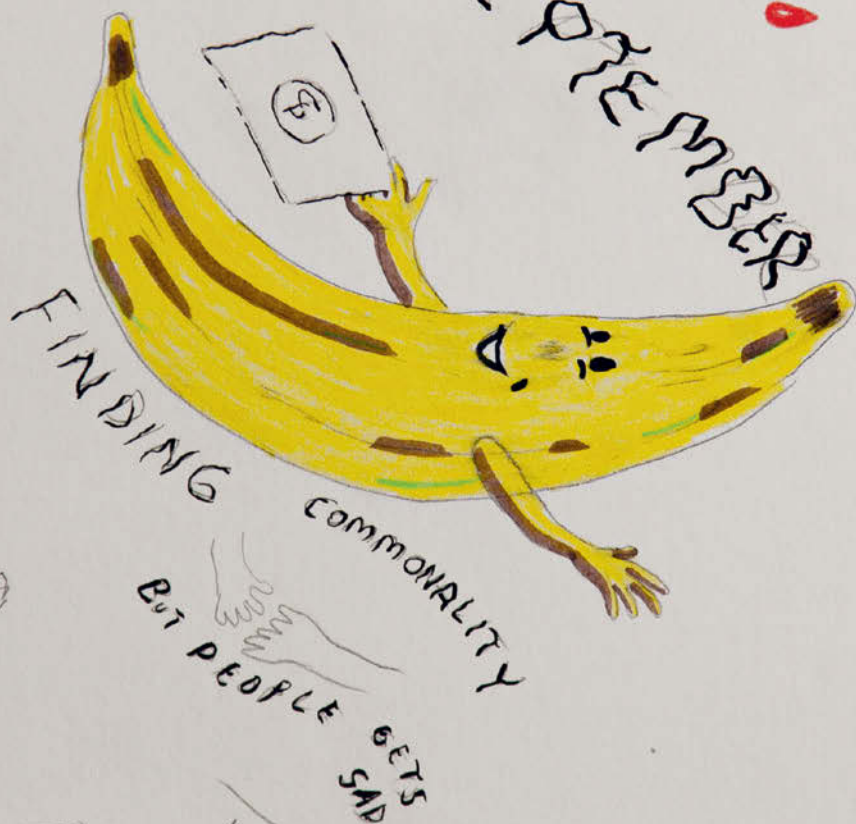 PTEMBER
FINDING
COMMONALITY
BUT PEOPLE GETS
SAD